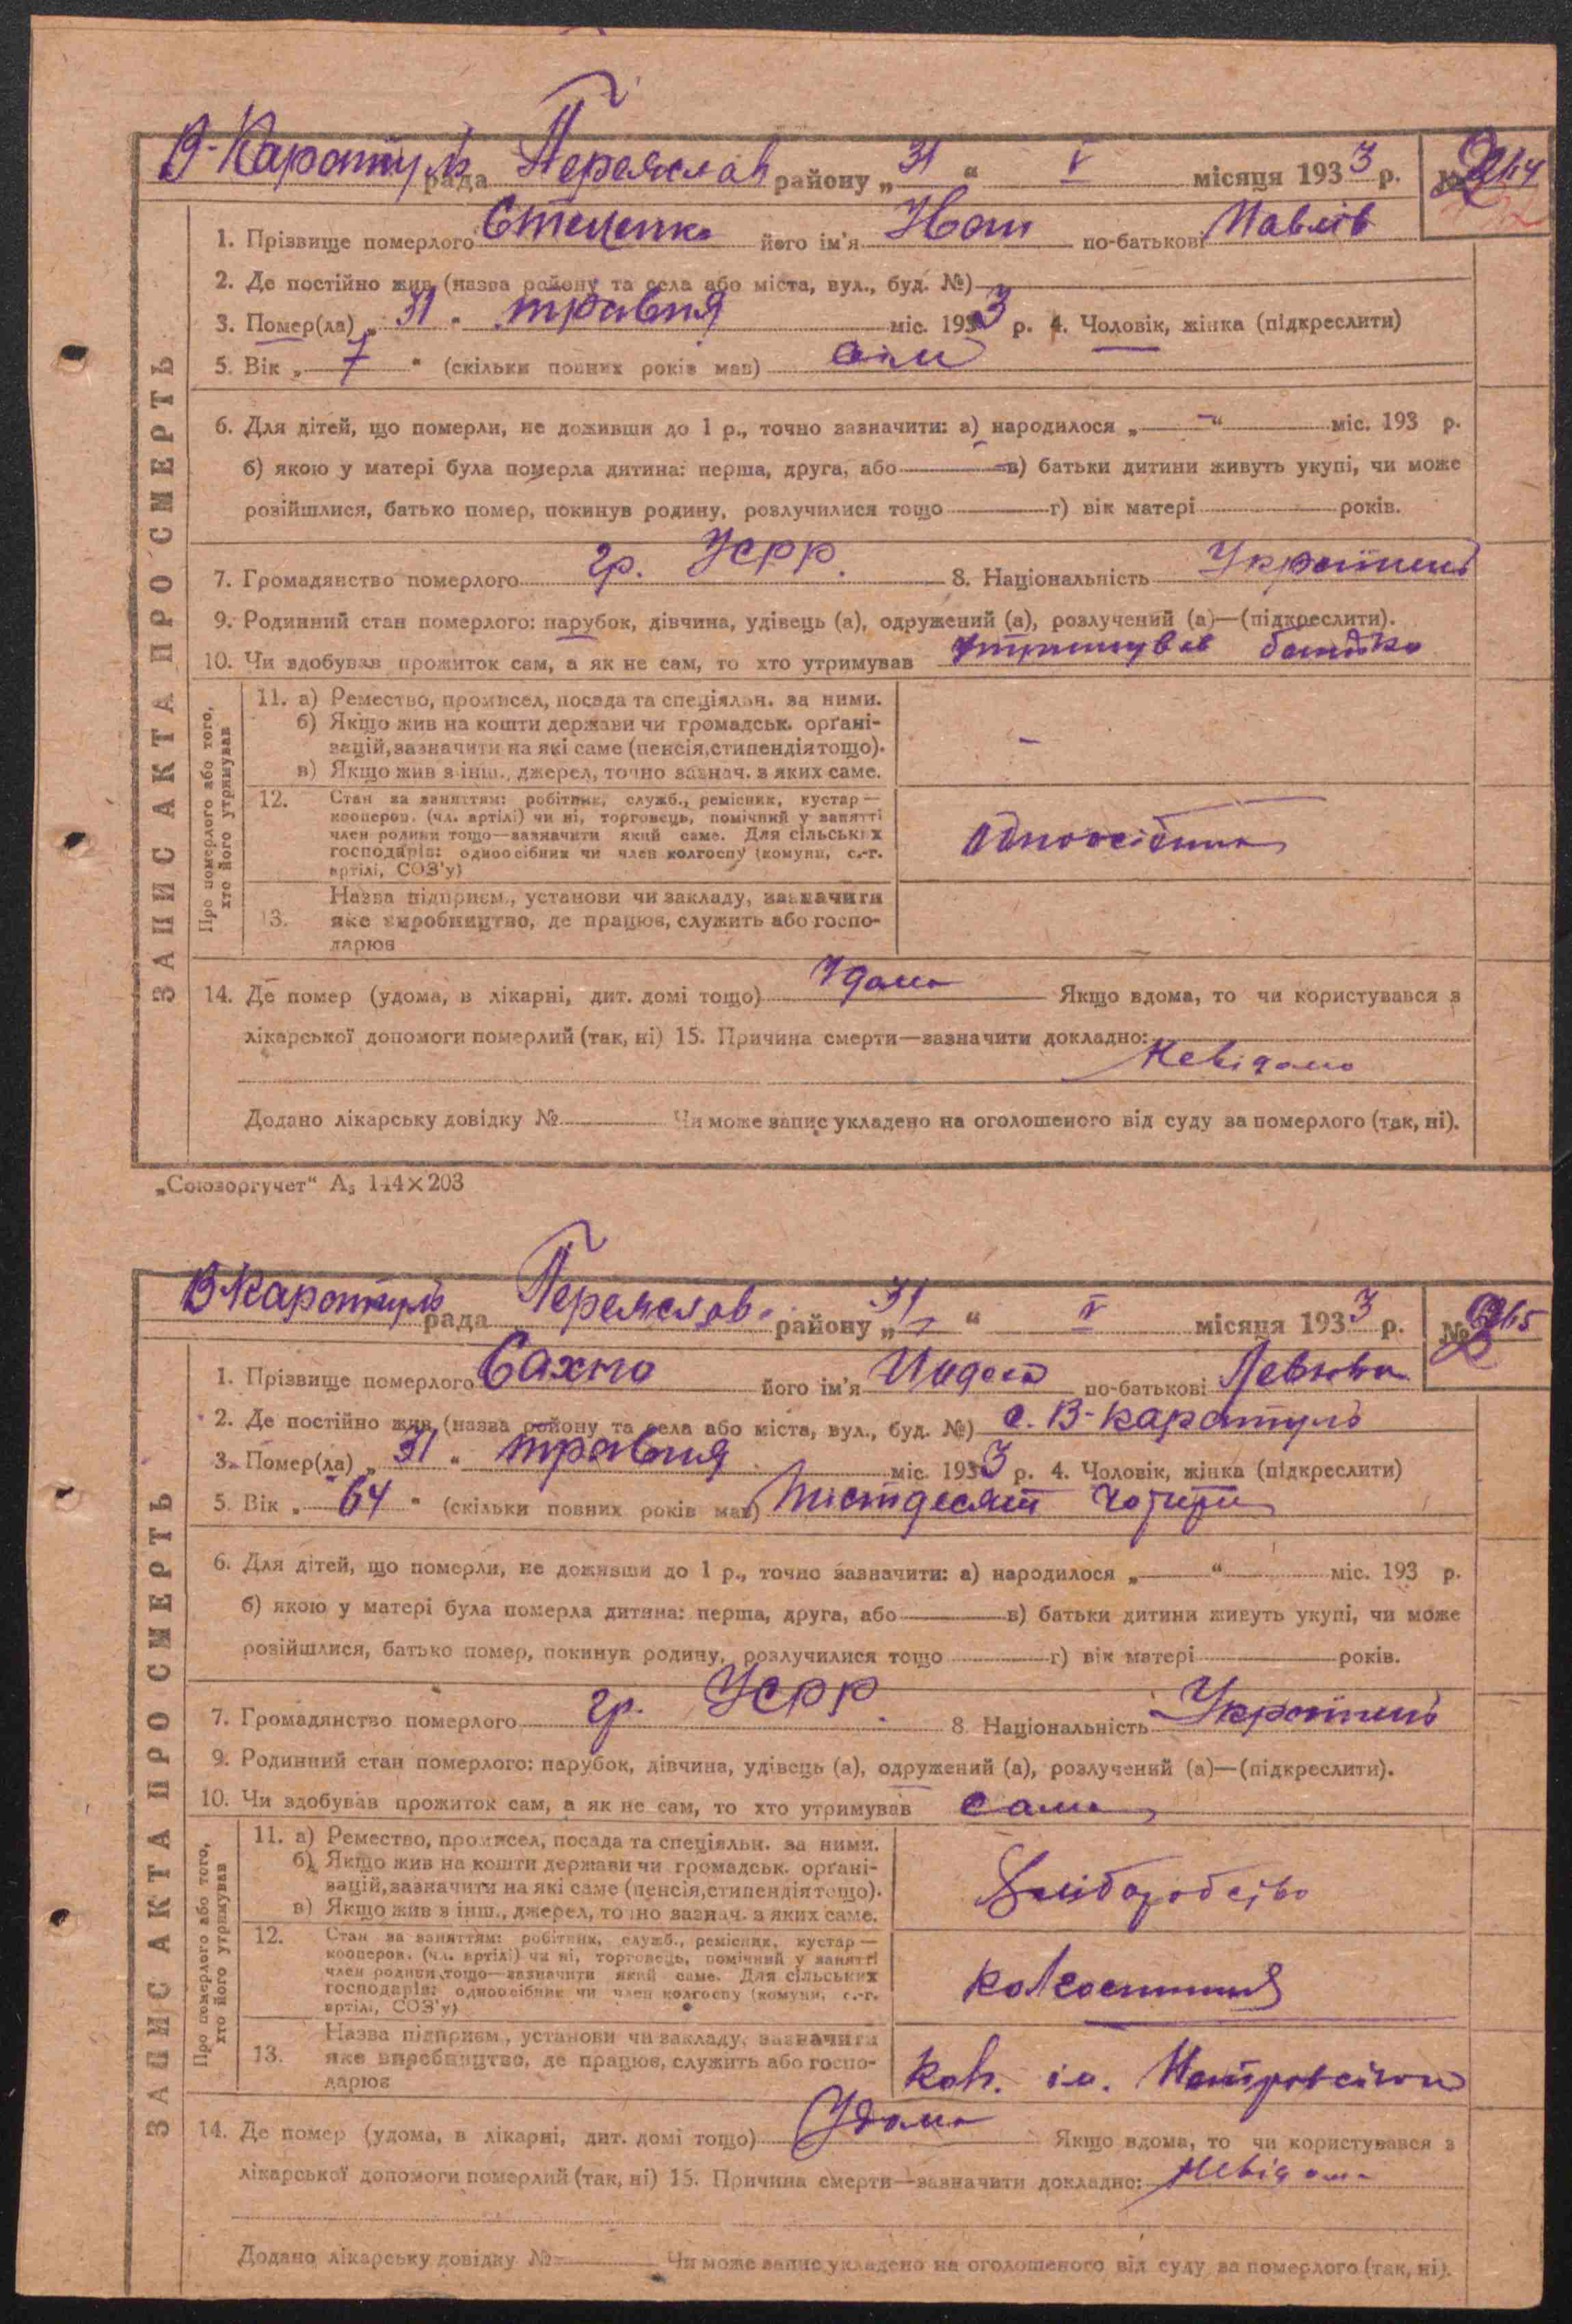 В-Каратуль рада Переяслав району „31“ V місяця 1933 р. № 264
1. Прізвище померлого Стеценко його ім’я Іван по-батькові Павлів
2. Де постійно жив (назва району та села або міста, вул., буд. №)
3. Помер(ла) „31“ травня міс. 1933 р. 4. Чоловік, жінка (підкреслити)
5. Вік „7“ (скільки повних років мав) сім
6. Для дітей, що померли, не доживши до 1 р., точно зазначити: а) народилося „—“ міс. 193 р.
б) якою у матері була померла дитина: перша, друга, або — в) батьки дитини живуть укупі, чи може
розійшлися, батько помер, покинув родину, розлучилися тощо г) вік матері років.
7. Громадянство померлого гр. УСРР. 8. Національність Українець
9. Родинний стан померлого: парубок, дівчина, удівець (а), одружений (а), розлучений (а)—(підкреслити).
10. Чи здобував прожиток сам, а як не сам, то хто утримував утримував батько
ЗАПИС АКТА ПРО СМЕРТЬ
Про померлого або того, хто його утримував
11. а) Ремество, промисел, посада та спеціяльн. за ними.
б) Якщо жив на кошти держави чи громадськ. орґані-
зацій, зазначити на які саме (пенсія, стипендія тощо).
в) Якщо жив з інш., джерел, точно зазнач. з яких саме.
—
12. Стан за заняттям: робітник, служб., ремісник, кустар —
кооперов. (чл. артілі) чи ні, торговець, помічний у занятті
член родини тощо—зазначити який саме. Для сільських
господарів: одноосібник чи член колгоспу (комуни, с.-г.
артілі, СОЗ’у)
одноосібник
13. Назва підприєм., установи чи закладу, зазначити
яке виробництво, де працює, служить або госпо-
дарює
14. Де помер (удома, в лікарні, дит. домі тощо) Удома Якщо вдома, то чи користувався з
лікарської допомоги померлий (так, ні) 15. Причина смерти—зазначити докладно:
Невідомо
Додано лікарську довідку № Чи може запис укладено на оголошеного від суду за померлого (так, ні).
„Союзоргучет“ А₅ 144×203
В-Каратуль рада Переяслав району „31“ V місяця 1933 р. № 265
1. Прізвище померлого Сахно його ім’я по-батькові
2. Де постійно жив (назва району та села або міста, вул., буд. №) с. В-Каратуль
3. Помер(ла) „31“ травня міс. 1933 р. 4. Чоловік, жінка (підкреслити)
5. Вік „64“ (скільки повних років мав) Шістдесят чотири
6. Для дітей, що померли, не доживши до 1 р., точно зазначити: а) народилося „—“ міс. 193 р.
б) якою у матері була померла дитина: перша, друга, або — в) батьки дитини живуть укупі, чи може
розійшлися, батько помер, покинув родину, розлучилися тощо г) вік матері років.
7. Громадянство померлого гр. УСРР. 8. Національність Українець
9. Родинний стан померлого: парубок, дівчина, удівець (а), одружений (а), розлучений (а)—(підкреслити).
10. Чи здобував прожиток сам, а як не сам, то хто утримував сама
ЗАПИС АКТА ПРО СМЕРТЬ
Про померлого або того, хто його утримував
11. а) Ремество, промисел, посада та спеціяльн. за ними.
б) Якщо жив на кошти держави чи громадськ. орґані-
зацій, зазначити на які саме (пенсія, стипендія тощо).
в) Якщо жив з інш., джерел, точно зазнач. з яких саме.
Хліборобство
12. Стан за заняттям: робітник, служб., ремісник, кустар —
кооперов. (чл. артілі) чи ні, торговець, помічний у занятті
член родини тощо—зазначити який саме. Для сільських
господарів: одноосібник чи член колгоспу (комуни, с.-г.
артілі, СОЗ’у)
колгоспниця
13. Назва підприєм., установи чи закладу, зазначити
яке виробництво, де працює, служить або госпо-
дарює
ім. Петровського
14. Де помер (удома, в лікарні, дит. домі тощо) Удома Якщо вдома, то чи користувався з
лікарської допомоги померлий (так, ні) 15. Причина смерти—зазначити докладно: Невідомо
Додано лікарську довідку № Чи може запис укладено на оголошеного від суду за померлого (так, ні).